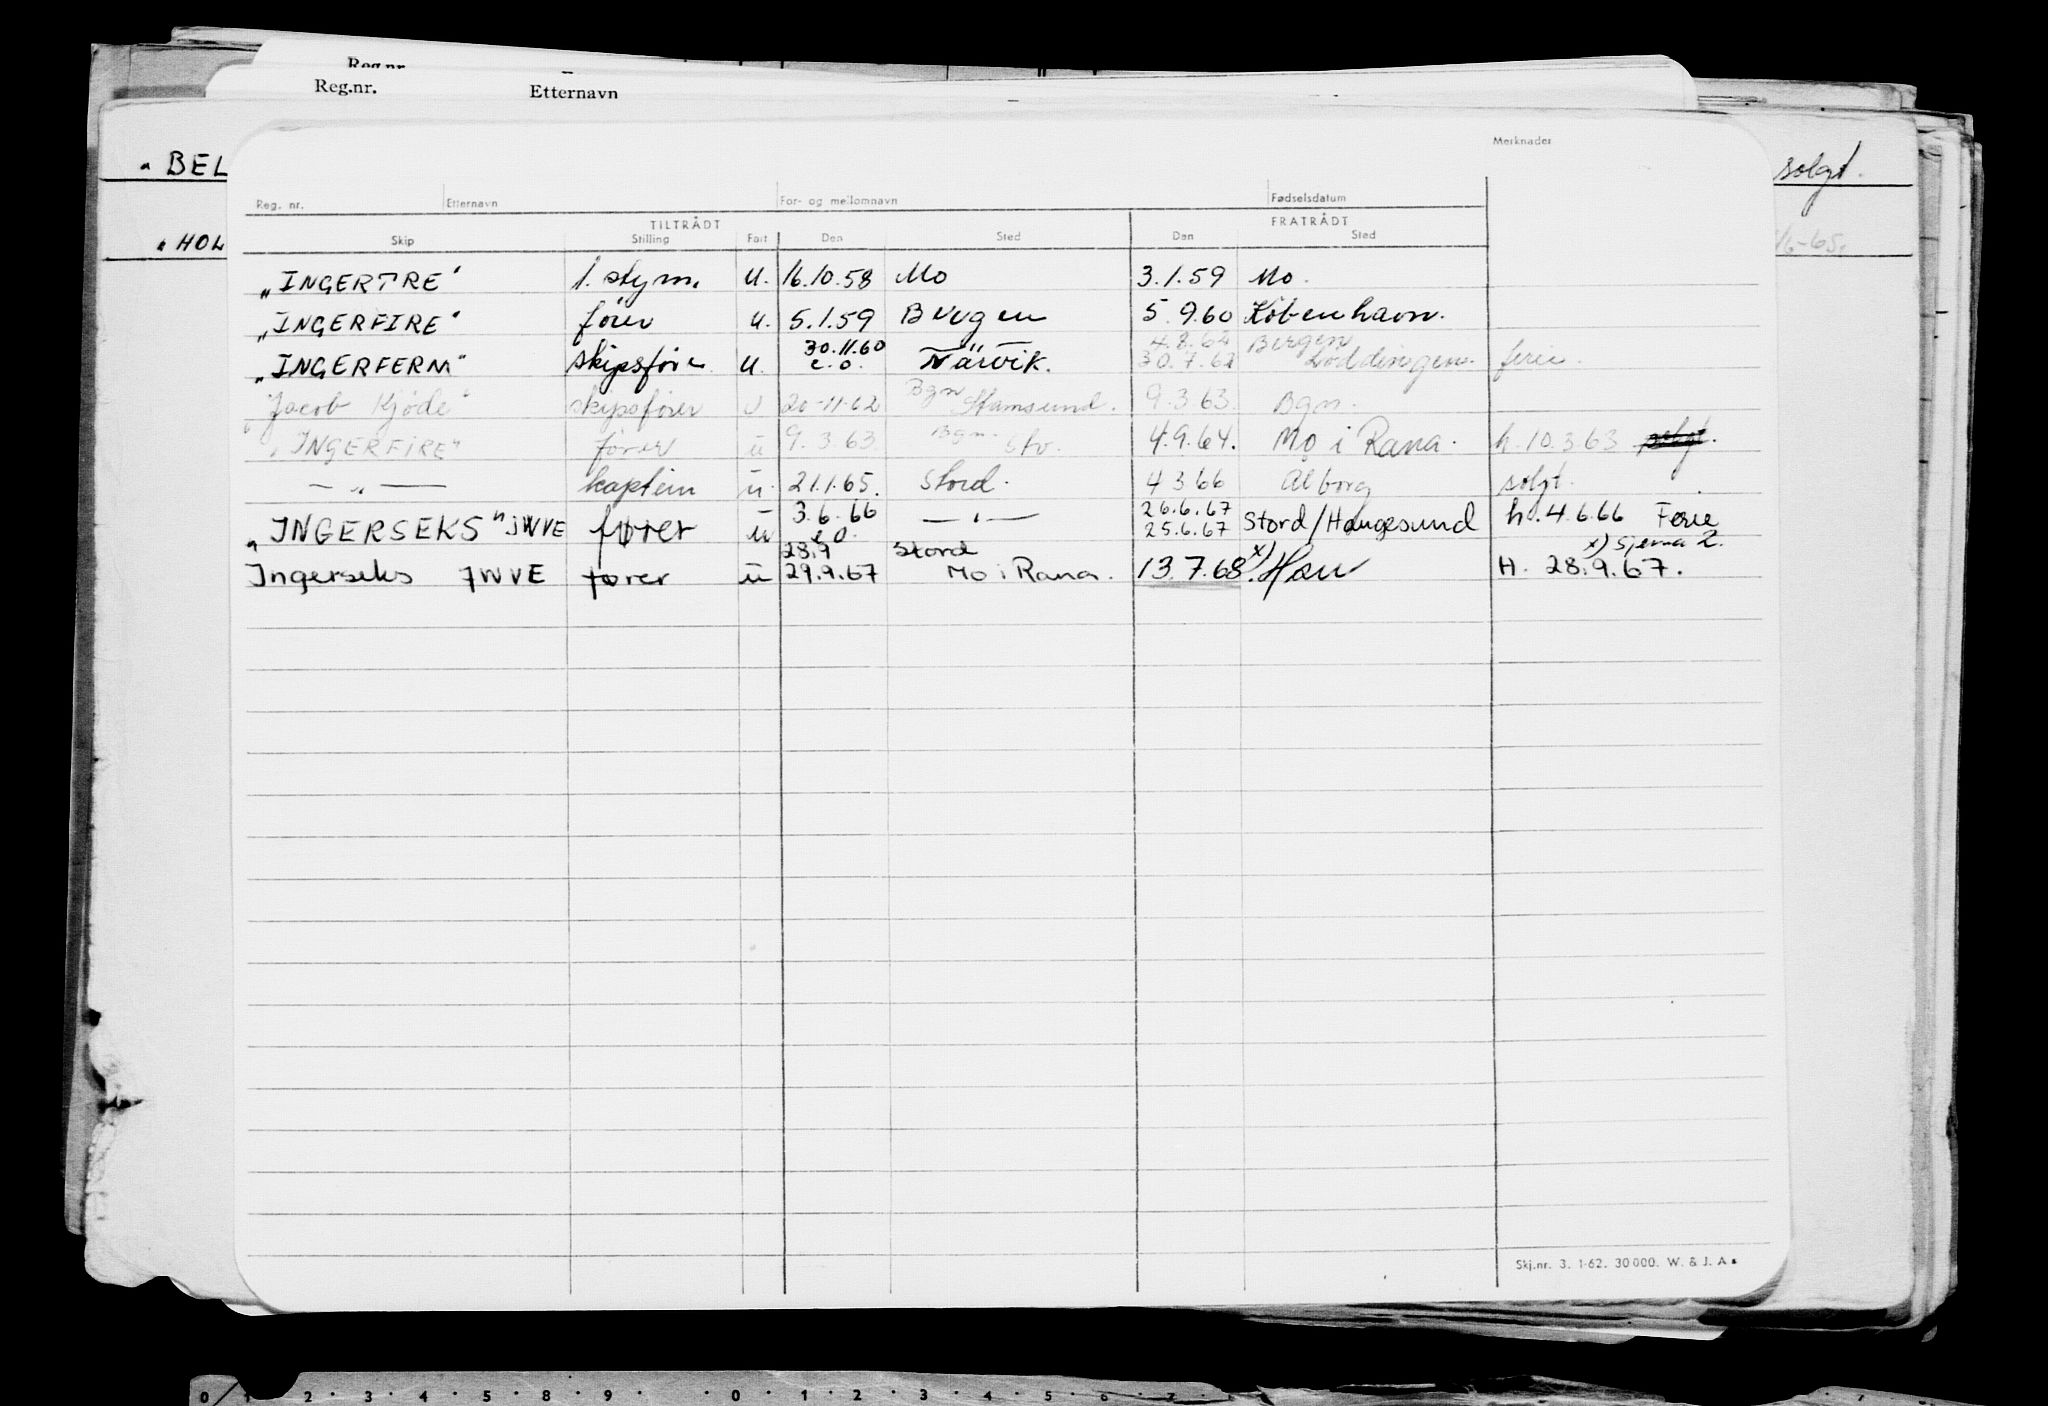 Reg.nr.
Reg.nr. Etternavn
Merknader
"BEL solgt.
Reg. nr. Etternavn For- og mellomnavn Fødselsdatum
TILTRÅDT FRATRÅDT
Skip Stilling Fart Den Sted Den Sted
"HOL /6-65.
"INGERTRE" 1. styrm. u. 16.10.58 Mo 3.1.59 Mo.
"INGERFIRE" fører u. 5.1.59 Bergen 5.9.60 København.
30.11.60 4.8.62 Bergen
"INGERFERM" skipsfører u. e.o. Narvik. 30.7.62 Løddingen. ferie.
"Jacob Kjøde" skipsfører u 20-11-62 Bgn Stamsund. 9.3.63. Bgn.
"INGERFIRE" fører u 9.3.63. Bgn. Stv. 4.9.64. Mo i Rana. h.10.3.63 solgt.
— " — kaptein u. 21.1.65. Stord. 4 3 66 Ålborg solgt.
3.6.66 26.6.67
"INGERSEKS" JWVE fører u e.o. — " — 25.6.67 Stord/Haugesund h.4.6.66 Ferie
28.9 Stord x) Sjerma 2.
Ingerseks JWVE fører u 29.9.67 Mo i Rana. 13.7.68. x) Hau H. 28.9.67.
Skj.nr. 3. 1-62. 30 000. W. & J. A s
0 1 2 3 4 5 8 9 0 1 2 3 4 5 6 7